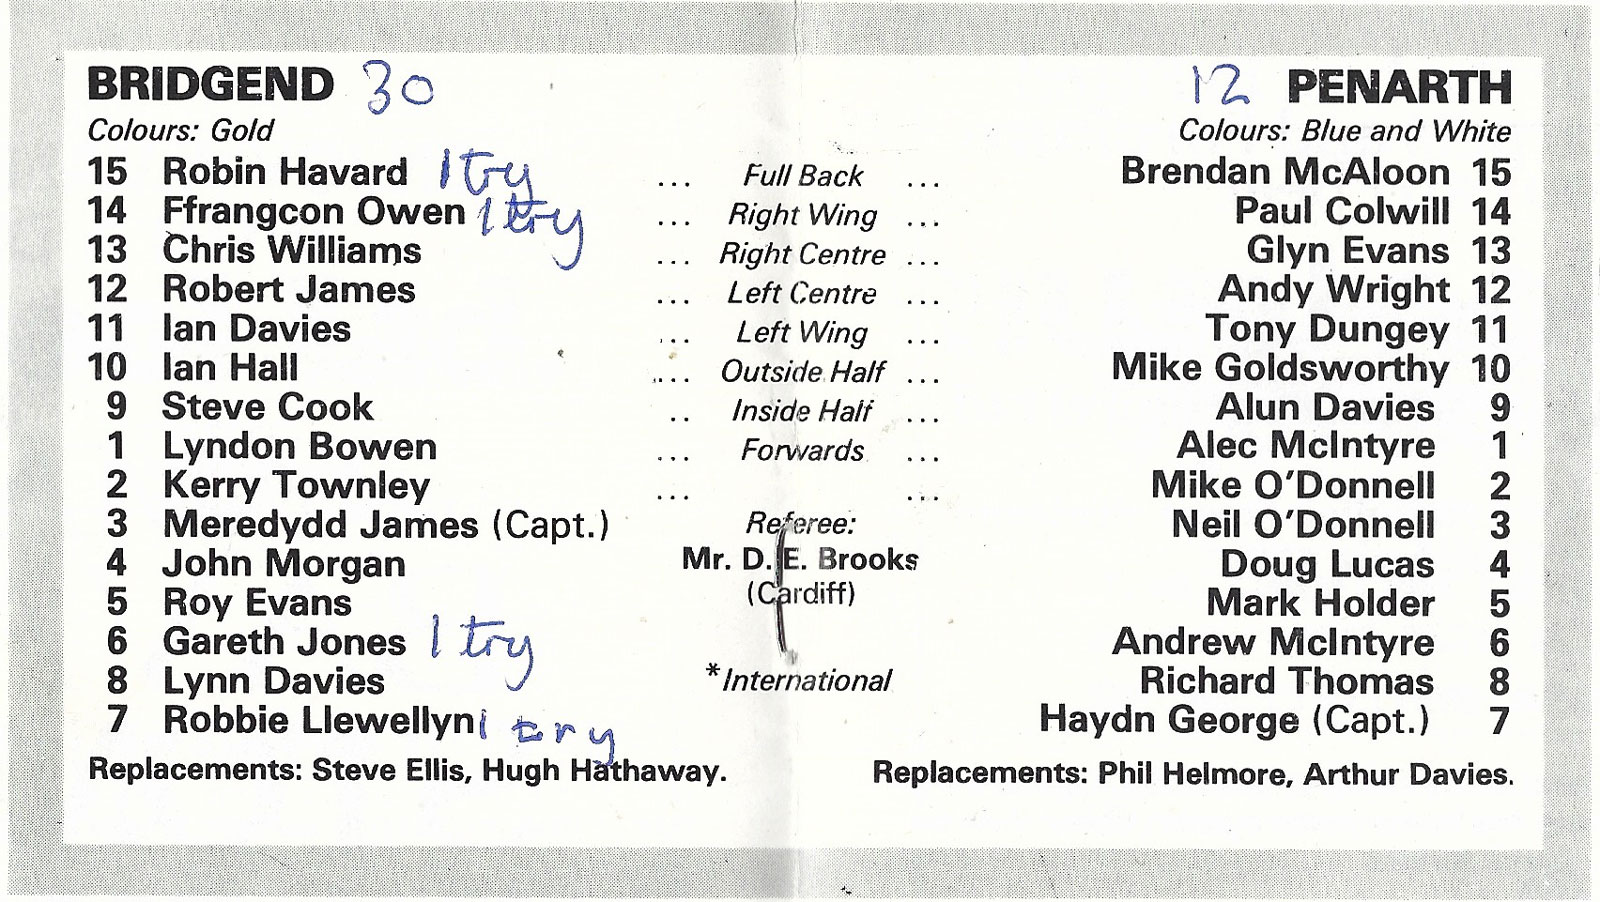 BRIDGEND 30 12 PENARTH
Colours: Gold Colours: Blue and White
15 Robin Havard 1 try ... Full Back ... Brendan McAloon 15
14 Ffrangcon Owen 1 try ... Right Wing ... Paul Colwill 14
13 Chris Williams ... Right Centre ... Glyn Evans 13
12 Robert James ... Left Centre ... Andy Wright 12
11 Ian Davies ... Left Wing ... Tony Dungey 11
10 Ian Hall .... Outside Half ... Mike Goldsworthy 10
9 Steve Cook .. Inside Half ... Alun Davies 9
1 Lyndon Bowen ... Forwards ... Alec McIntyre 1
2 Kerry Townley ... ... Mike O'Donnell 2
3 Meredydd James (Capt.) Referee: Neil O'Donnell 3
4 John Morgan Mr. D. E. Brooks Doug Lucas 4
5 Roy Evans (Cardiff) Mark Holder 5
6 Gareth Jones 1 try Andrew McIntyre 6
8 Lynn Davies *International Richard Thomas 8
7 Robbie Llewellyn 1 try Haydn George (Capt.) 7
Replacements: Steve Ellis, Hugh Hathaway. Replacements: Phil Helmore, Arthur Davies.